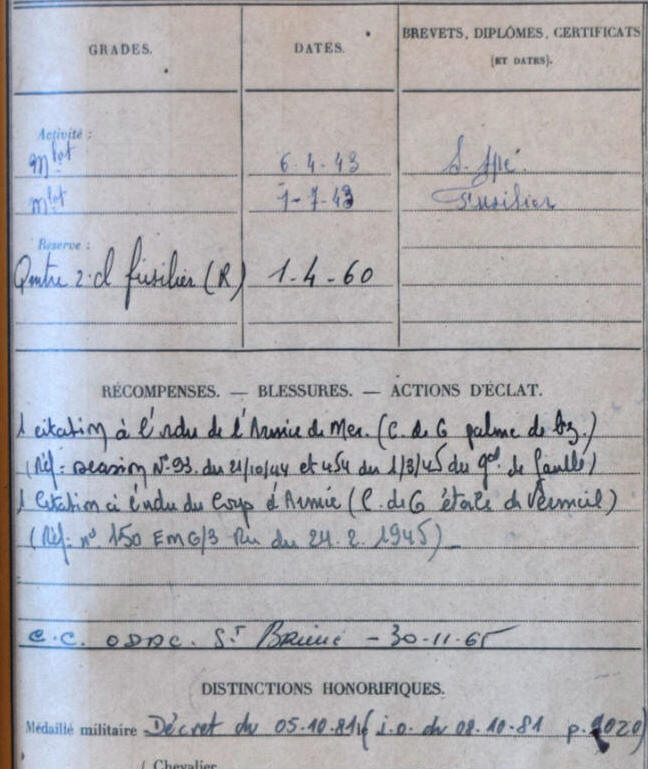 GRADES. DATES. BREVETS, DIPLÔMES, CERTIFICATS
(ET DATES).
Activité :
Mlot 6.4.43 S. Spé.
Mlot 1-7-43 Fusilier
Réserve :
Qmtre 2.cl fusilier (R) 1.4-60
RÉCOMPENSES. — BLESSURES. — ACTIONS D'ÉCLAT.
1 citation à l'ordre de l'Armée de Mer. (C. de G palme de Bz.)
(Réf: décision N°93. du 21/10/44 et 454 du 1/3/45 du gal de Gaulle)
1 Citation à l'ordre du Corps d'Armée (C. de G étoile de Vermeil)
(Réf: n° 150 EMG/3 du 24.2.1945)
C.C. ODAC. ST Brieuc - 30-11-65
DISTINCTIONS HONORIFIQUES.
Médaillé militaire Décret du 05.10.81 (j.o. du 08.10.81 p. 9020)
Chevalier